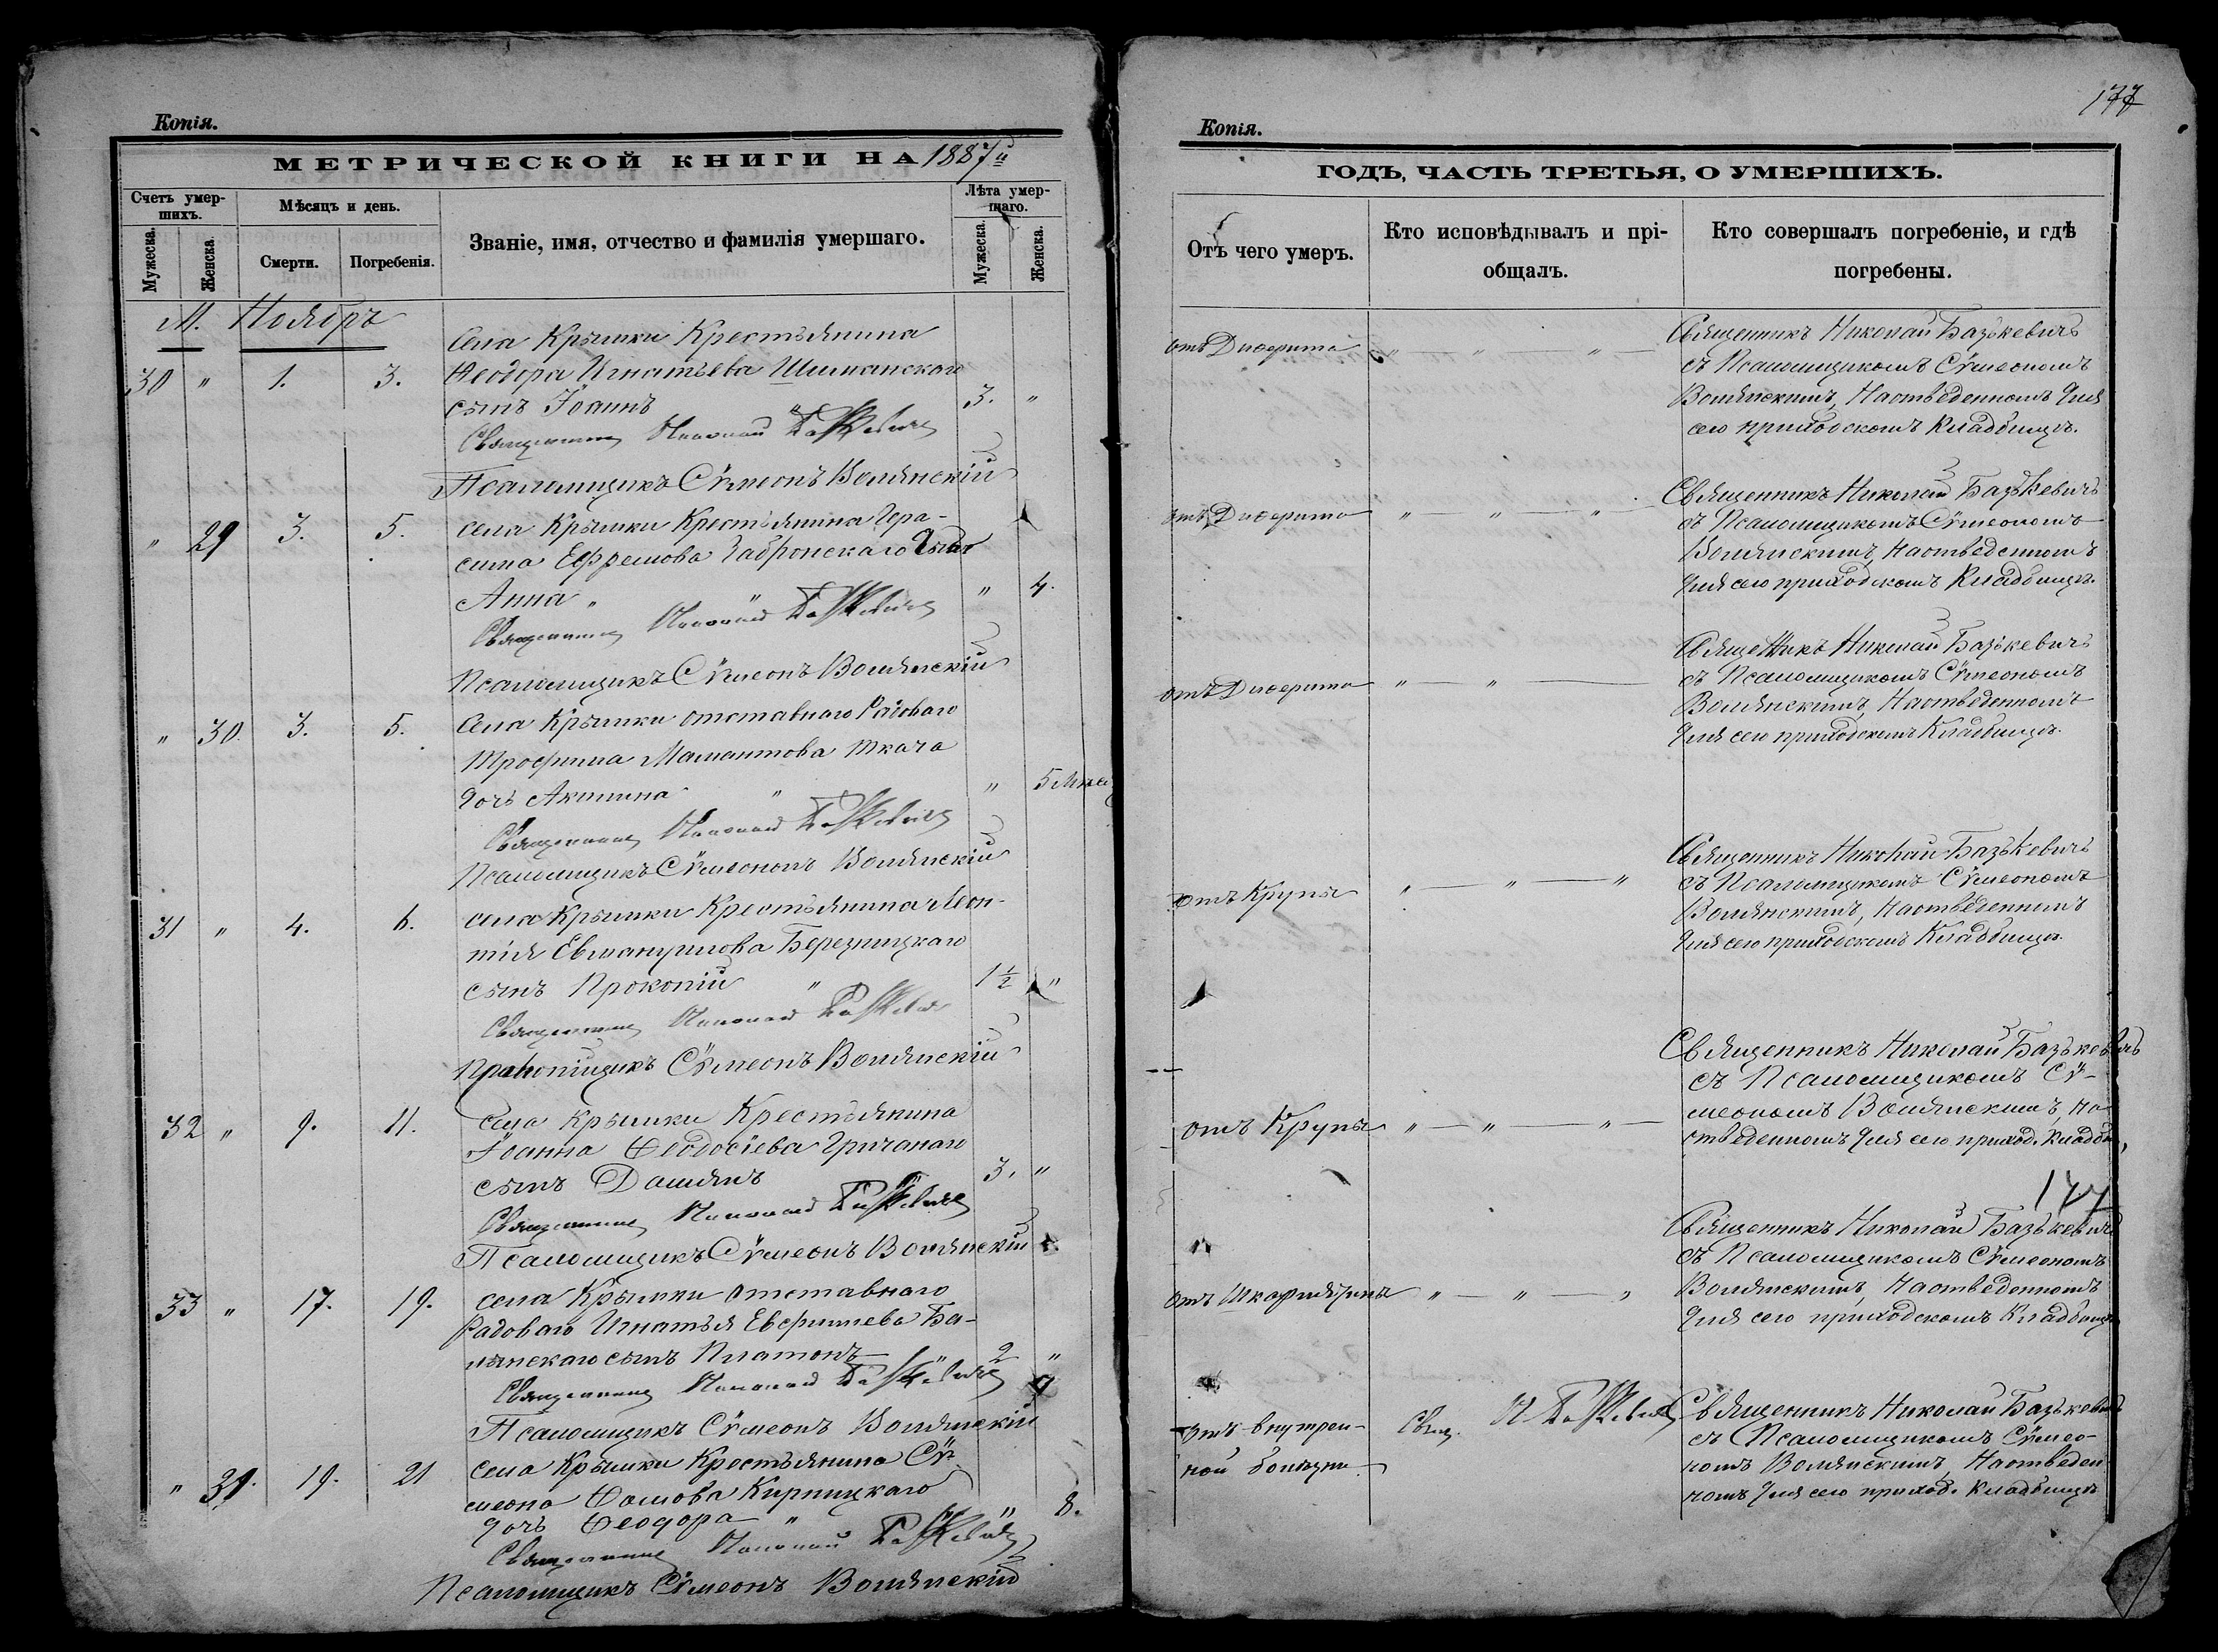 Копія.
МЕТРИЧЕСКОЙ КНИГИ НА 1887й
Счетъ умер-
шихъ.
Мѣсяцъ и день.
Званіе, имя, отчество и фамилія умершаго.
Лѣта умер-
шаго.
Мужеска.
Женска.
Смерти.
Погребенія.
Мужеска.
Женска.
М. Ноябрь
Села Крымки Крестьянина
30 " 1. 3. Ѳеодора Игнатьева Шиманскаго
сынъ Іоаннъ " 3. "
Священникъ Николай Базькевичъ
Псаломщикъ Сѵмеонъ Волянскій
села Крымки Крестьянина Гера-
" 29 3. 5. сима Ефремова
Анна " " " 4.
Священникъ Николай Базькевичъ
Псаломщикъ Сѵмеонъ Волянскій
Села Крымки отставнаго Рядоваго
" 30. 3. 5. Трофима Мамантова Ткача
дочь Акилина " " 5 Мѣсяц
Священникъ Николай Базькевичъ
Псаломщикъ Сѵмеонъ Волянскій
села Крымки Крестьянина Леон-
31 " 4. 6. тія Березницкаго
сынъ Прокопій " 1 1/2 "
Священникъ Николай Базькевичъ
Сѵмеонъ Волянскій
села Крымки Крестьянина
32 " 9. 11. Іоанна Ѳеодосіева Гричанаго
сынъ Даміанъ 3. "
Священникъ Николай Базькевичъ
Псаломщикъ Сѵмеонъ Волянскій
села Крымки отставнаго
33 " 17. 19. Рядоваго Игнатья Евфиміева Ба-
лянскаго сынъ Платонъ " 2 "
Священникъ Николай Базькевичъ
Псаломщикъ Сѵмеонъ Волянскій
села Крымки Крестьянина Сѵ-
" 31. 19. 21 меона Ѳомова Кирницкаго
дочь Ѳеодора " " 8.
Священникъ Николай Базькевичъ
Псаломщикъ Сѵмеонъ Волянскій
177
Копія.
ГОДЪ, ЧАСТЬ ТРЕТЬЯ, О УМЕРШИХЪ.
Отъ чего умеръ.
Кто исповѣдывалъ и прі-
общалъ.
Кто совершалъ погребеніе, и гдѣ
погребены.
отъ Диѳерита " " "
Священникъ Николай Базькевичъ
съ Псаломщикомъ Сѵмеономъ
Волянскимъ, На отведенномъ для
сего приходскомъ Кладбищѣ.
отъ Диѳерита " " "
Священникъ Николай Базькевичъ
съ Псаломщикомъ Сѵмеономъ
Волянскимъ, на отведенномъ
для сего приходскомъ Кладбищѣ.
отъ Диѳерита " "
Священникъ Николай Базькевичъ
съ Псаломщикомъ Сѵмеономъ
Волянскимъ, На отведенномъ
для сего приходскомъ Кладбищѣ.
отъ Крупа " " "
Священникъ Николай Базькевичъ
съ Псаломщикомъ Сѵмеономъ
Волянскимъ, На отведенномъ
для сего приходскомъ Кладбищѣ.
отъ Крупа " " "
Священникъ Николай Базькевичъ
съ Псаломщикомъ Сѵ-
меономъ Волянскимъ, на
отведенномъ для сего приход. Кладбищ,
177
отъ Шкарлятины " " "
Священникъ Николай Базькевичъ
съ Псаломщикомъ Сѵмеономъ
Волянскимъ, на отведенномъ
для сего приходскомъ Кладбищѣ
отъ внутрен-
ной болѣзни
Свящ. Н Базькевичъ
Священникъ Николай Базькевичъ
съ Псаломщикомъ Сѵмео-
номъ Волянскимъ, На отведен
номъ для сего приход. Кладбищѣ